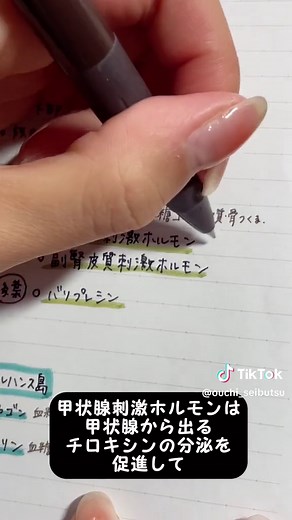 刺激ホルモン
副腎皮質刺激ホルモン
バソプレシン
ハンス島
ゴン 血
リン 血糖
TikTok
@ouchi_seibutsu
甲状腺刺激ホルモンは
甲状腺から出る
チロキシンの分泌を
促進して